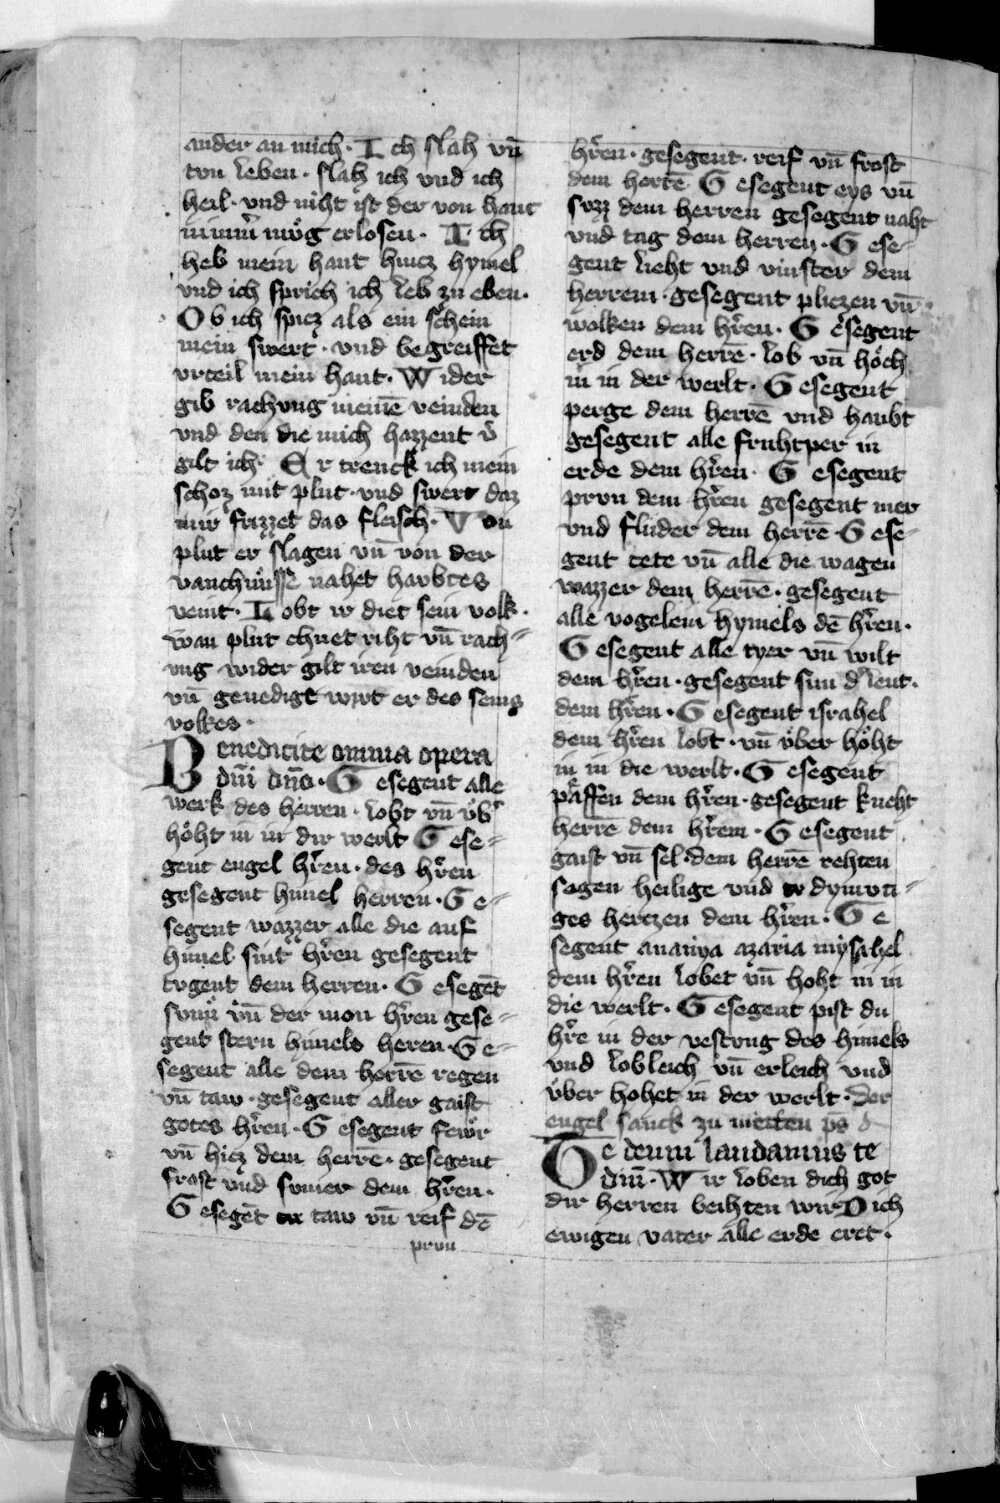 ander an mich · Ich slah vn̄
tvn leben · slah ich vnd ich
heil · vnd niht ist der von hant
minn̄ mo̊g erlosen · Ich
heb mein hant hincz hymel
vnd ich sprich ich leb zu eben ·
Ob ich spicz als ein schein
mein swert · vnd begreiffet
vrteil mein hant · Wider
gib rachvng meinē veinden
vnd den die mich hazzent v̓
gilt ich · Er trenck ich mein
schoz mit plut · vnd swert daz
mir frizzet das fleisch · Von
plut er slagen vn̄ von der
vanchnu̓sse nahet havbtes
veint · Lobt ir diet sein volk ·
wan plut chnet riht vn̄ rach⸗
ung wider gilt iren veinden
vn̄ genedigt wirt er des seins
volkes ·
Benedicite omnia opera
dn̄i dn̄o · Gesegent alle
werk des herren · lobt vn̄ v̓b̓
ho̓ht in in dir werlt Gese⸗
gent engel hr̄en · des hr̄en
gesegent himel herren · Ge⸗
segent wazzer alle die auf
himel sint hr̄en gesegent
tvgent dem herren · Gesegēt
svnn̓ vn̄ der mon hr̄en gese⸗
gent stern himels heren · Ge⸗
segent alle dem herrē regen
vn̄ taw · gesegent aller gaist
gotes hr̄en · Gesegent fewr
vn̄ hicz dem herrē · gesegent
frost vnd svmer dem hr̄en ·
Gesegēt taw vn̄ reif dē
prvn
hr̄en · gesegent · reif vn̄ frost
dem herrē Gesegent eys vn̄
snzz dem herren gesegent naht
vnd tag dem herren · Gese⸗
gent lieht vnd vinster dem
herrem · gesegent pliczen vn̄
wolken dem hr̄en · Gesegent
erd dem herrē · lob vn̄ ho̓ch
in in der werlt · Gesegent
perge dem herrē vnd haubt
gesegent alle fruhtper in
erde dem hr̄en · Gesegent
prvn dem hr̄en gesegent mer
vnd flu̓der dem herrē Gese⸗
gent cete vn̄ alle die wagen
wazzer dem herrē · gesegent
alle vogelein hymels dē hr̄en ·
Gesegent alle tyer vn̄ wilt
dem hr̄en · gesegent sun d̓ leut ·
dem hr̄en · Gesegent israhel
dem hr̄en lobt · vn̄ v̓ber ho̓ht
in in die werlt · Gesegent
pfaffen dem hr̄en · gesegent kneht
herrē dem hr̄em · Gesegent
gaist vn̄ sel dem herrē rehten
sagen heilige vnd dymvti⸗
ges herczen dem hr̄en · Ge
segent ananya azaria mysahel
dem hr̄en lobet vn̄ hoht in in
die werlt · Gesegent pist du
hr̄e in der vestvng des himels
vnd lobleich vn̄ erleich vnd
v̓ber hohet in der werlt · Der
engel sanck zu metten
Te deum laudamus te
dn̄m · Wir loben dich got
dir herren beihten wir Dich
ewigen vater alle erde eret ·